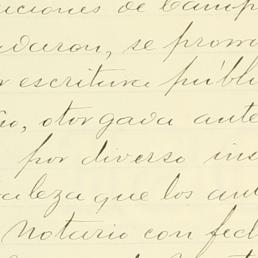 ciones de Camp
udaron, se prom
escritura públi
otorgada ante
por diverso ins
raleza que los an
Notario con fec